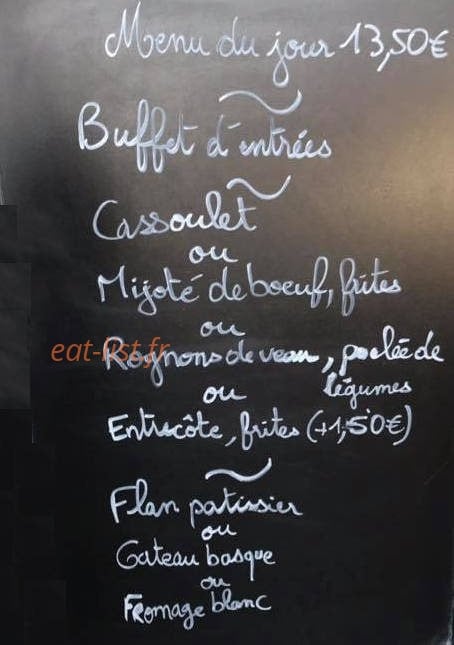 Menu du jour 13,50€
Buffet d'entrées
Cassoulet
ou
Mijoté de boeuf, frites
ou
eat-list.fr
Rognons de veau, poelée de
légumes
ou
Entrecôte, frites (+1,50€)
Flan patissier
ou
Gateau basque
ou
Fromage blanc